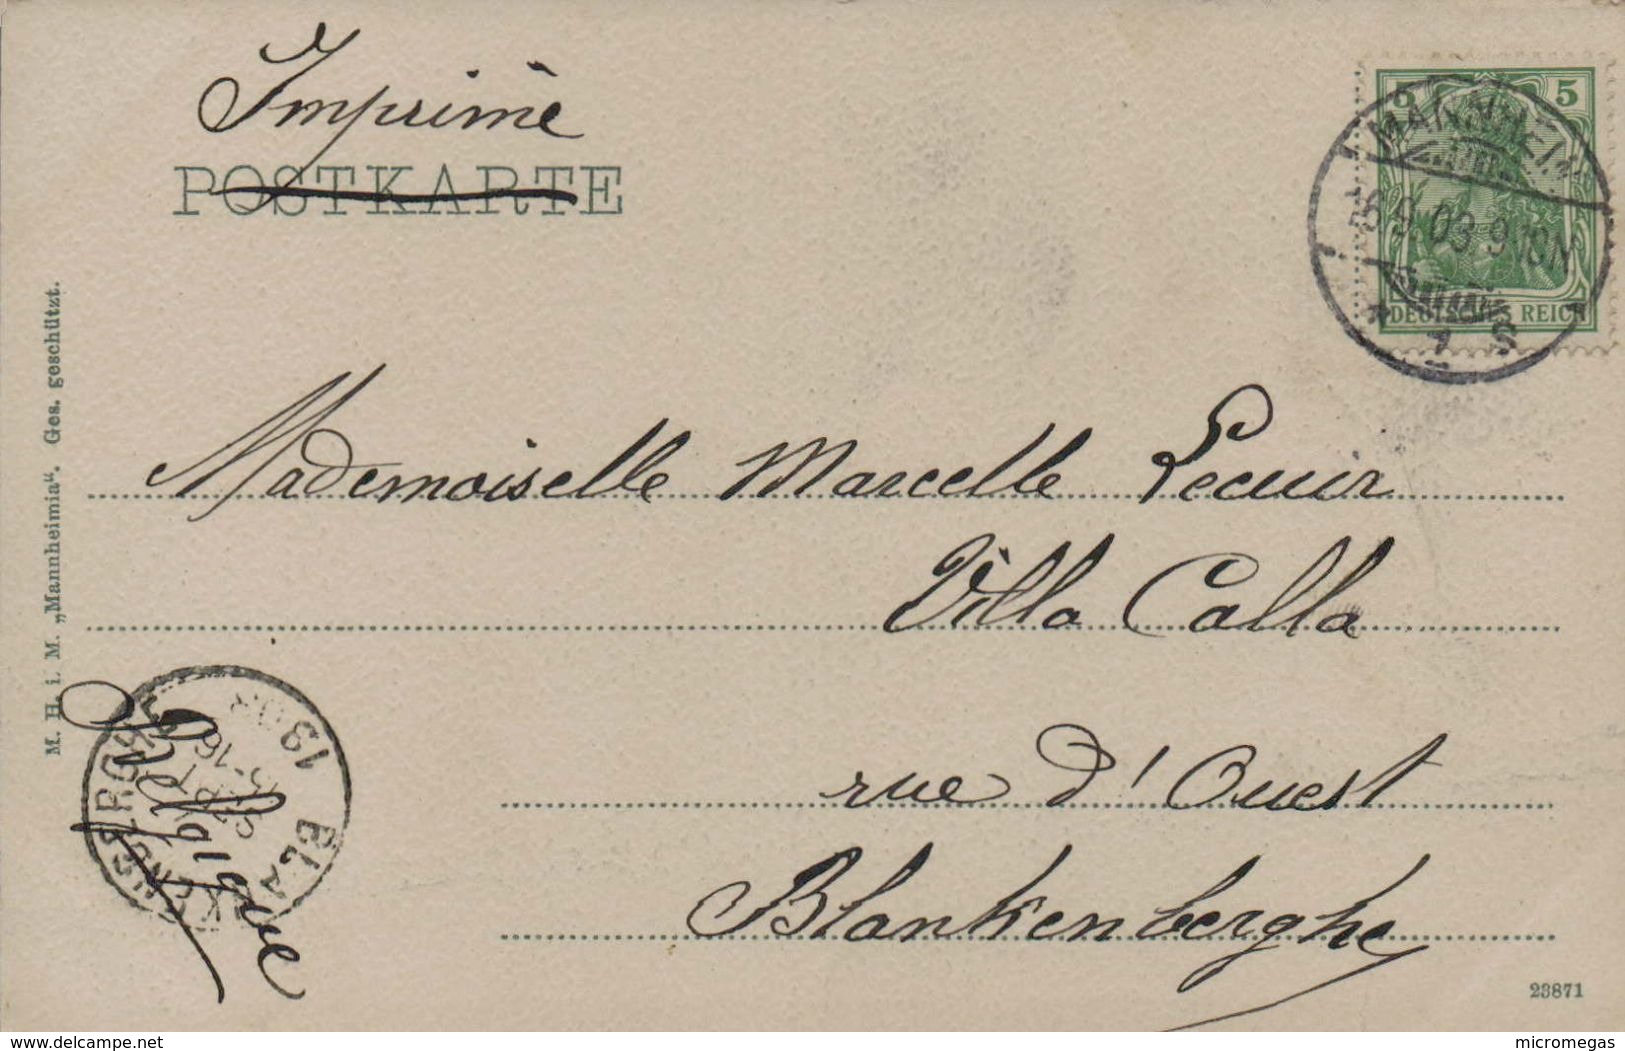 Imprimè
POSTKARTE
5 5
MANNHEIM
6.9.03.9-10N
DEUTSCHES REICH
* 1 S
M. H. i. M. „Mannheimia“. Ges. geschützt.
Mademoiselle Marcelle Lecuur
Villa Calla
rue d'Ouest
Blankenberghe
Belgique
BLANKENBERGHE
SEPT
1903
23871
www.delcampe.net
micromegas